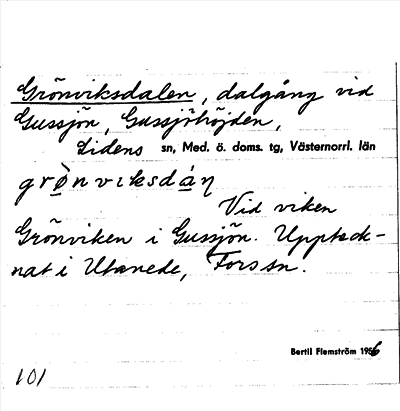 Grönviksdalen, dalgång vid
Gussjön, Gussjöhöjden,
Lidens sn, Med. ö. doms. tg, Västernorrl. län
grø̀nviksdáņ
Vid viken
Grönviken i Gussjön. Uppteck-
nat i Utanede, Fors sn.
Bertil Flemström 1956
101